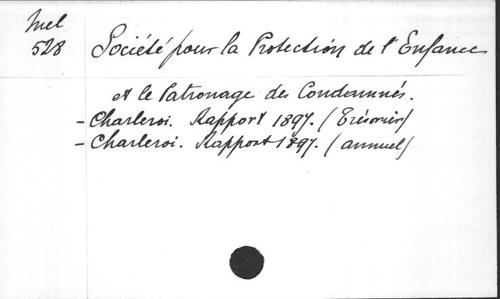 Mel
528
Société pour la Protection de l'Enfance
et le Patronage des Condamnés.
- Charleroi. Rapport 1897. (Trésorier)
- Charleroi. Rapport 1897. (annuel)